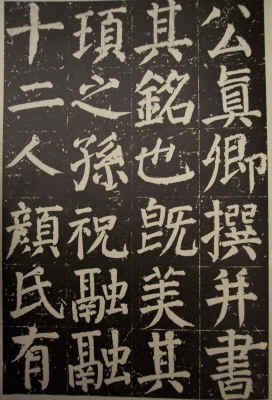 公真卿撰并書
其銘也既美其
頊之孫祝融融
十二人顏氏有